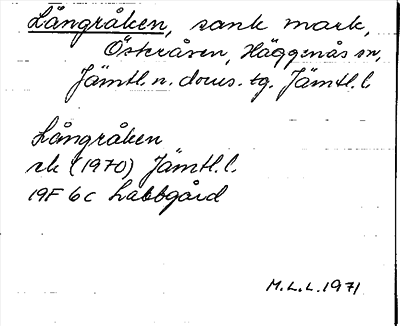 Långråken, sank mark,
Österåsen, Häggenås sn,
Jämtl. n. doms. tg. Jämtl. l
Långråken
ek (1970) Jämtl. l.
19F 6c Labbgård
M.L.L. 1971